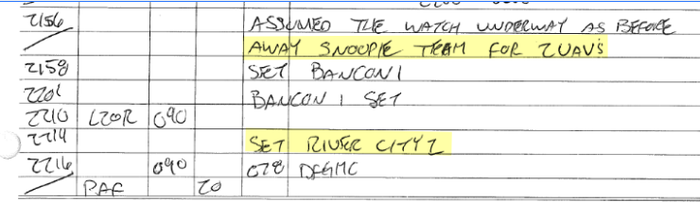 2156 ASSUMED THE WATCH UNDERWAY AS BEFORE
AWAY SNOOPIE TEAM FOR 2 UAV'S
2158 SET EMCON 1
2201 EMCON 1 SET
2210 L20R 090
2214 SET RIVER CITY 2
2216 090 078 DEGMC
20